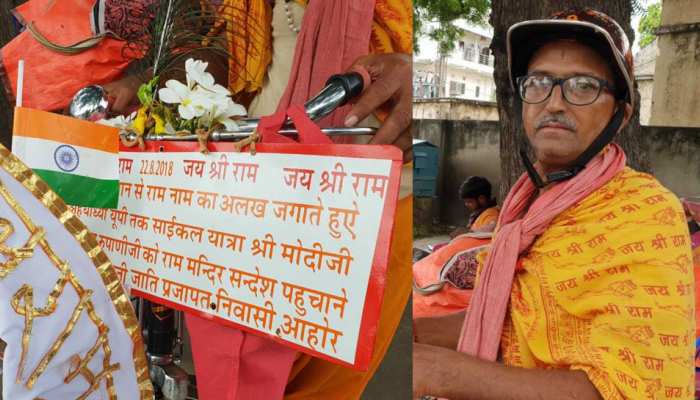 राम 22.8.2018 जय श्री राम जय श्री राम
ान से राम नाम का अलख जगाते हुऐ
यूपी तक साईकल यात्रा श्री मोदीजी
को राम मन्दिर सन्देश पहुचाने
जाति प्रजापत निवासी आहोर
जय श्री राम
जय श्री राम
जय श्री राम
जय श्री राम
जय श्री राम